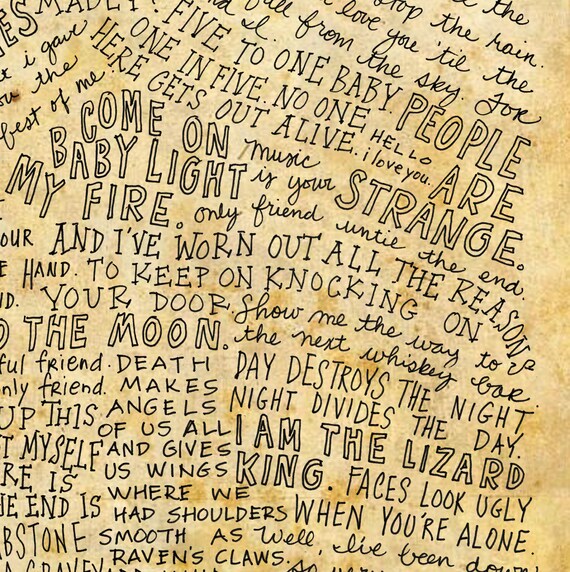 MADLY?
stop the rain. the
and I. fall from the sky. For
love you 'til the
FIVE TO ONE BABY
ONE IN FIVE. NO ONE
HERE GETS OUT ALIVE.
i gave
the
best of me.
HELLO
i love you.
PEOPLE
ARE
STRANGE.
COME ON
BABY LIGHT
MY FIRE.
music
is your
only friend until the end.
AND I'VE WORN OUT ALL THE REASONS
HAND. TO KEEP ON KNOCKING ON
YOUR DOOR.
Show me the way to
the next whiskey bar.
THE MOON.
friend.
only friend.
UP THIS
MYSELF
IS
THE END IS
DEATH
MAKES
ANGELS
OF US ALL
AND GIVES
US WINGS
WHERE WE
HAD SHOULDERS
SMOOTH AS
RAVEN'S CLAWS.
DAY DESTROYS THE NIGHT
NIGHT DIVIDES THE DAY.
I AM THE LIZARD
KING.
FACES LOOK UGLY
WHEN YOU'RE ALONE.
Well, I've been down
so